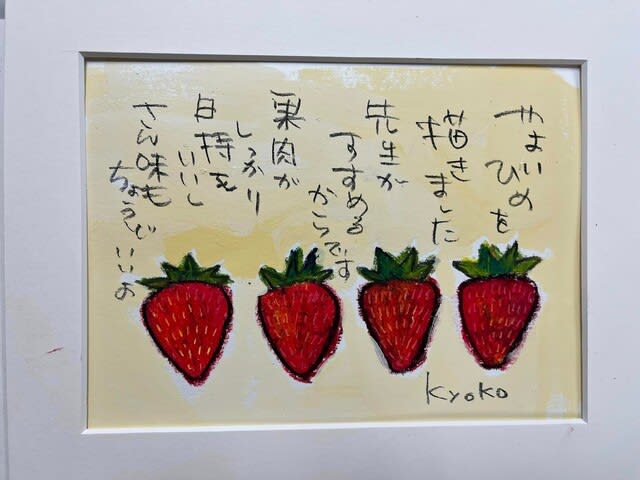 やよいひめを
描きました
先生が
すすめる
からです
果肉が
しっかり
日持を
いいし
さん味も
ちょうどいいよ
Kyoko